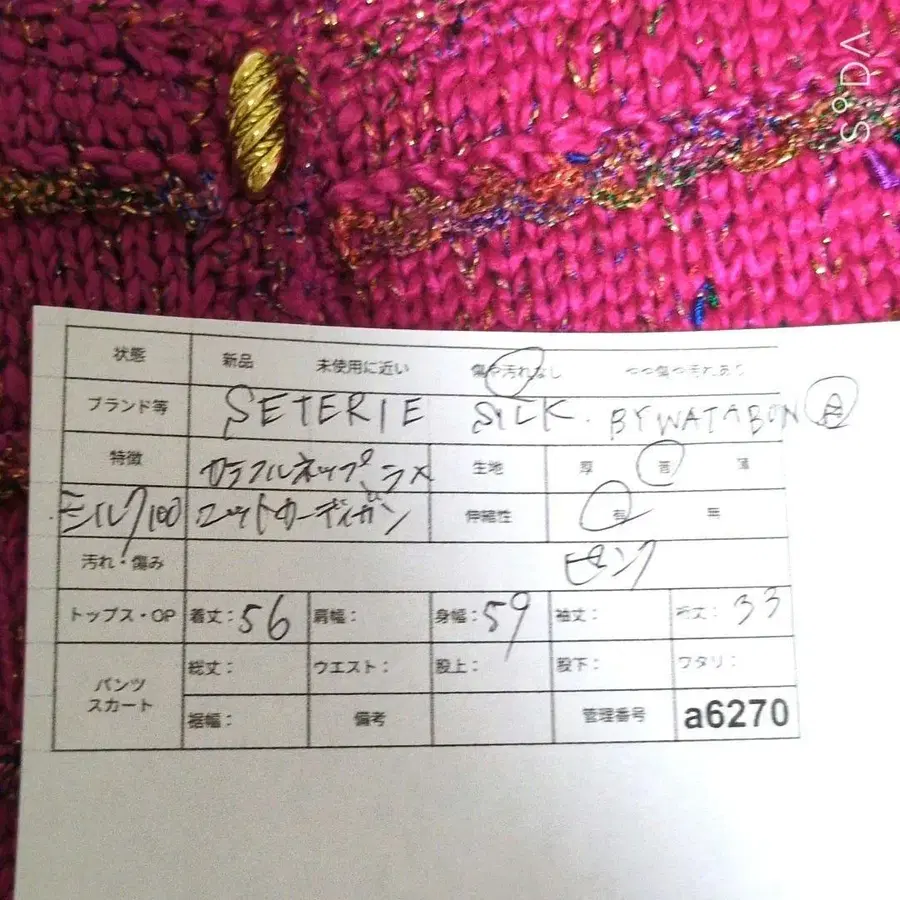 S°DA
状態 新品 未使用に近い 傷や汚れなし やや傷や汚れあり
ブランド等 SETERIE SILK. BY WATABON A
特徴 カラフルネップ ラメ 生地 厚 普 薄
シルク100 ニットカーディガン 伸縮性 有 無
汚れ・傷み ピンク
トップス・OP 着丈：56 肩幅： 身幅：59 袖丈： 裄丈：33
パンツ スカート 総丈： ウエスト： 股上： 股下： ワタリ：
裾幅： 備考 管理番号 a6270